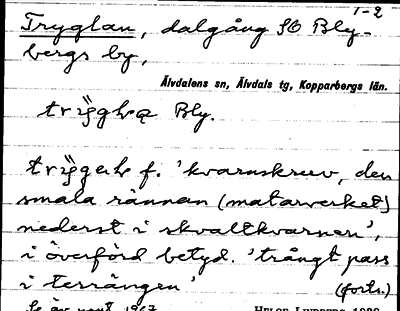 1-2
Tryglan, dalgång SO Bly-
bergs by,
Älvdalens sn, Älvdals tg, Kopparbergs län.
Bly.
f. 'kvarnskruv, den
smala rännan (matarverket)
nederst i skvaltkvarnen',
i överförd betyd. 'trångt pass
i terrängen' (forts.)